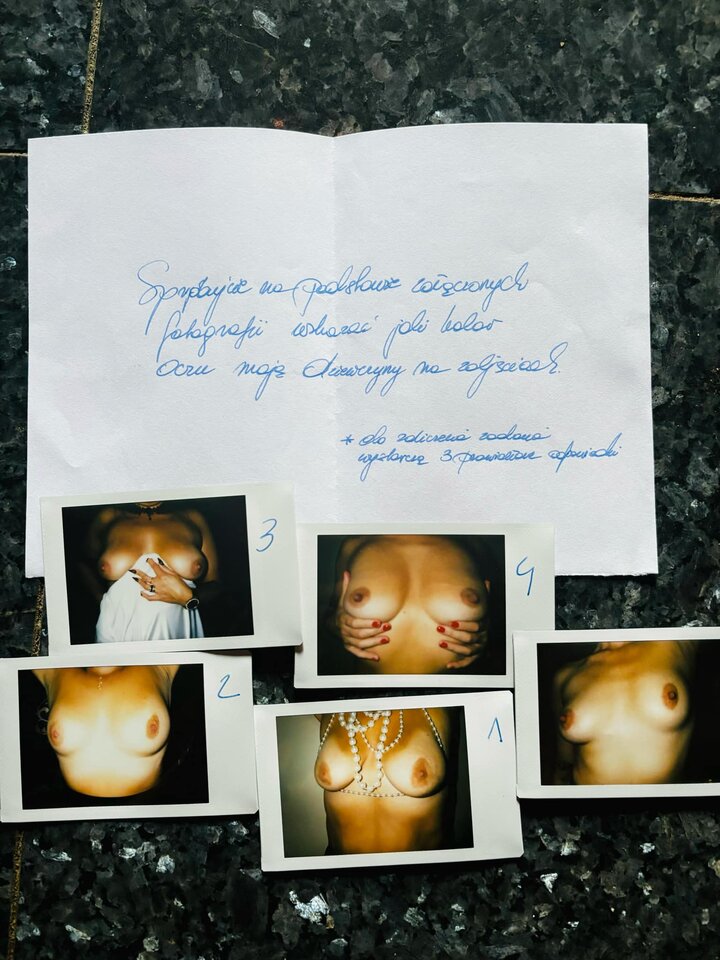 Spróbujcie na podstawie załączonych
fotografii wskazać jaki kolor
oczu mają dziewczyny na zdjęciach.
* do zaliczenia zadania
wystarczą 3 prawidłowe odpowiedzi
3
4
2
1